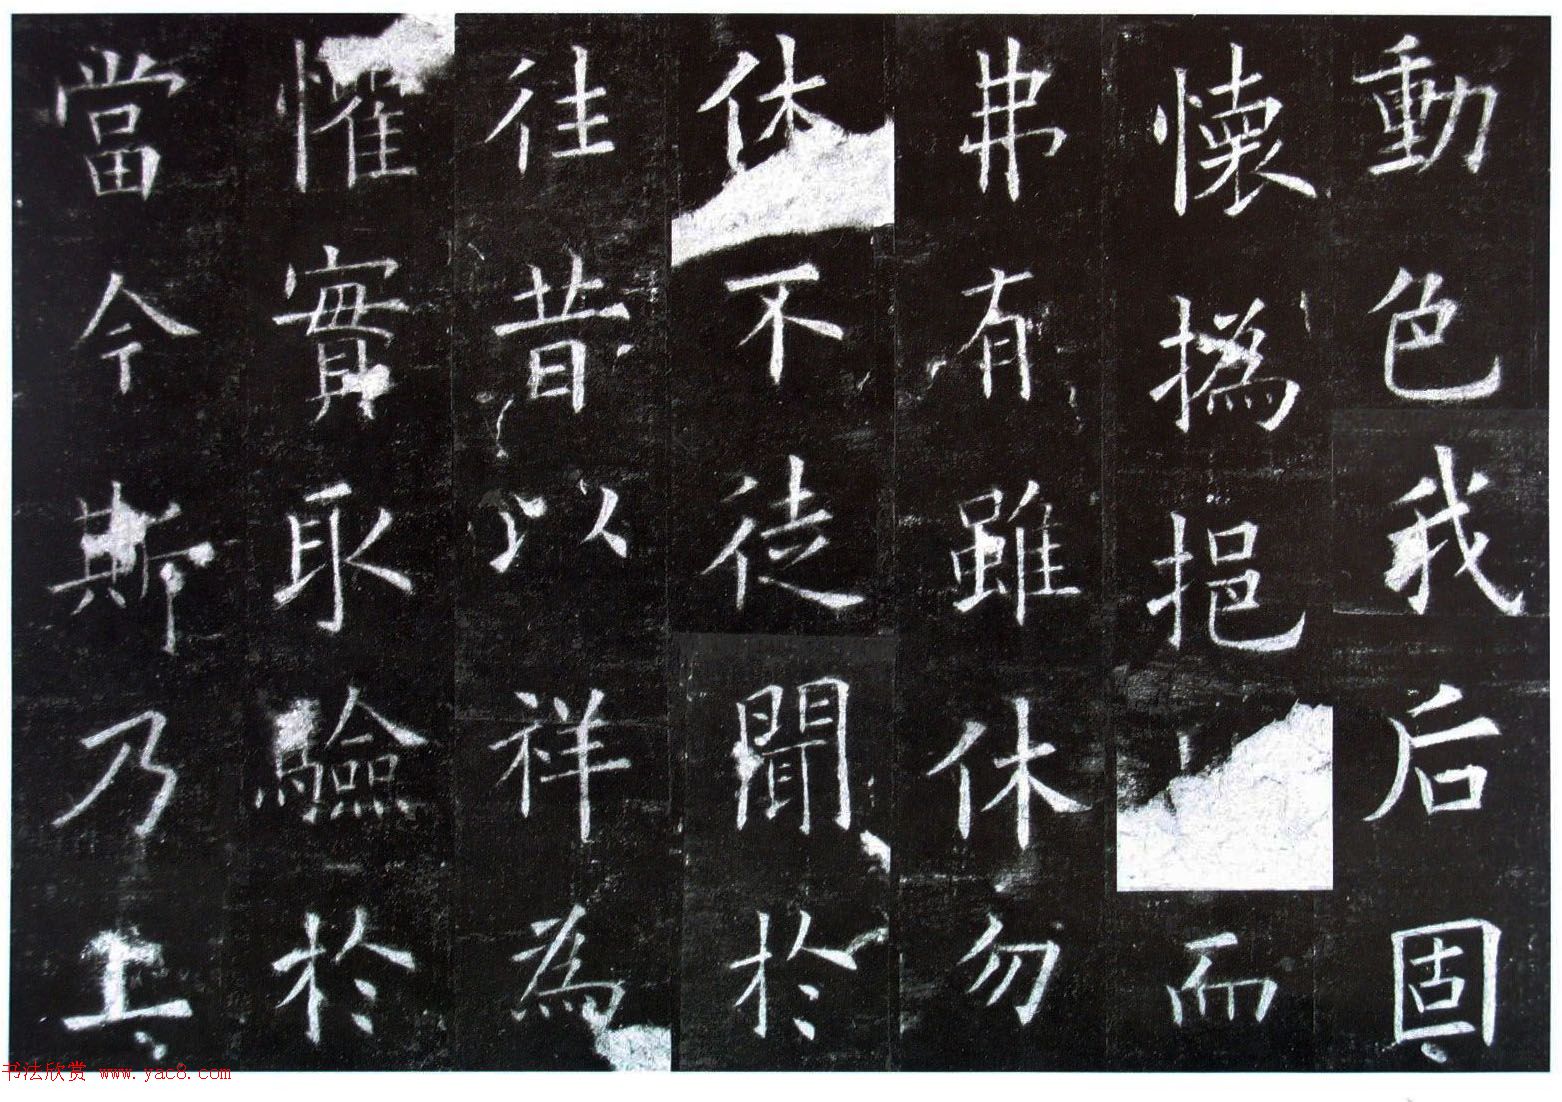 動色我后固
懷撝挹而
弗有雖休勿
休不徒聞於
往昔以祥為
懼實取驗於
當今斯乃上
书法欣赏 www.yac8.com